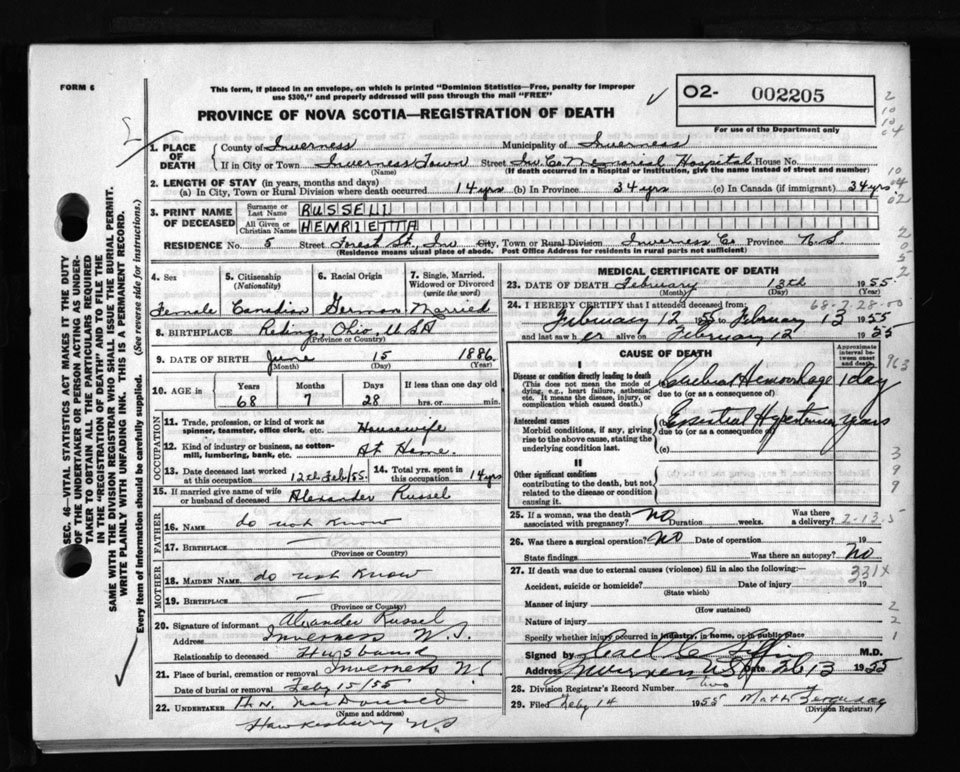 FORM 6
This form, if placed in an envelope, on which is printed "Dominion Statistics—Free, penalty for improper
use $300," and properly addressed will pass through the mail "FREE"
PROVINCE OF NOVA SCOTIA—REGISTRATION OF DEATH
02- 002205
For use of the Department only
SEC. 46—VITAL STATISTICS ACT MAKES IT THE DUTY
OF THE UNDERTAKER OR PERSON ACTING AS UNDER-
TAKER TO OBTAIN ALL THE PARTICULARS REQUIRED
IN THE "REGISTRATION OF DEATH" AND TO FILE THE
SAME WITH THE DIVISION REGISTRAR WHO SHALL ISSUE THE BURIAL PERMIT.
WRITE PLAINLY WITH UNFADING INK. THIS IS A PERMANENT RECORD.
Every item of information should be carefully supplied. (See reverse side for instructions.)
1. PLACE OF DEATH
County of Inverness Municipality of Inverness
If in City or Town Inverness Town Street Inv. Co. Memorial Hospital House No.
(Name) (If death occurred in a hospital or institution, give the name instead of street and number)
2. LENGTH OF STAY (in years, months and days)
(a) In City, Town or Rural Division where death occurred 14 yrs (b) In Province 34 yrs (c) In Canada (if immigrant) 34 yrs
3. PRINT NAME OF DECEASED
Surname or Last Name RUSSELL
All Given or Christian Names HENRIETTA
RESIDENCE No. 5 Street Forest St., Inv City, Town or Rural Division Inverness Co Province N.S
(Residence means usual place of abode. Post Office Address for residents in rural parts not sufficient)
4. Sex Female
5. Citizenship (Nationality) Canadian
6. Racial Origin German
7. Single, Married, Widowed or Divorced (write the word) Married
8. BIRTHPLACE Reding, Ohio, USA
(Province or Country)
9. DATE OF BIRTH June 15 1886
(Month) (Day) (Year)
10. AGE is Years 68 Months 7 Days 28 If less than one day hrs. or min.
OCCUPATION
11. Trade, profession, or kind of work as spinner, teamster, office clerk, etc. Housewife
12. Kind of industry or business, as cotton-mill, lumbering, bank, etc. At Home.
13. Date deceased last worked at this occupation 12th Feb/55. 14. Total yrs. spent in this occupation 14 yrs
15. If married give name of wife or husband of deceased Alexander Russel
FATHER
16. NAME do not know
17. BIRTHPLACE —
(Province or Country)
MOTHER
18. MAIDEN NAME do not know
19. BIRTHPLACE —
(Province or Country)
20. Signature of informant Alexander Russel
Address Inverness N.S.
Relationship to deceased Husband
21. Place of burial, cremation or removal Inverness N.S
Date of burial or removal Feby 15/55
22. UNDERTAKER MacDonald
(Name and address)
Hawkesbury N.S
MEDICAL CERTIFICATE OF DEATH
23. DATE OF DEATH February 13th 1955
(Month) (Day) (Year)
68-7-28-00
24. I HEREBY CERTIFY that I attended deceased from:
February 12 1955 to February 13 1955
and last saw her alive on February 12 1955
CAUSE OF DEATH
Approximate interval between onset and death
I
Disease or condition directly leading to death
(This does not mean the mode of dying, e.g., heart failure, asthenia, etc. It means the disease, injury, or complication which caused death.)
Cerebral Hemorrhage 1 day
due to (or as a consequence of)
Antecedent causes
Morbid conditions, if any, giving rise to the above cause, stating the underlying condition last.
Essential Hypertension years
due to (or as a consequence of)
(c)
II
Other significant conditions
contributing to the death, but not related to the disease or condition causing it.
25. If a woman, was the death associated with pregnancy? No Duration weeks. Was there a delivery? 2-13-5
26. Was there a surgical operation? No Date of operation 19
State findings Was there an autopsy? No
27. If death was due to external causes (violence) fill in also the following:— 331x
Accident, suicide or homicide? Date of injury 19
(State which)
Manner of injury
(How sustained)
Nature of injury
Specify whether injury occurred in industry, in home, or in public place
Signed by M.D.
Address Inverness N.S. Date Feb 13 1955
28. Division Registrar's Record Number two
29. Filed Feby 14 1955
(Division Registrar)